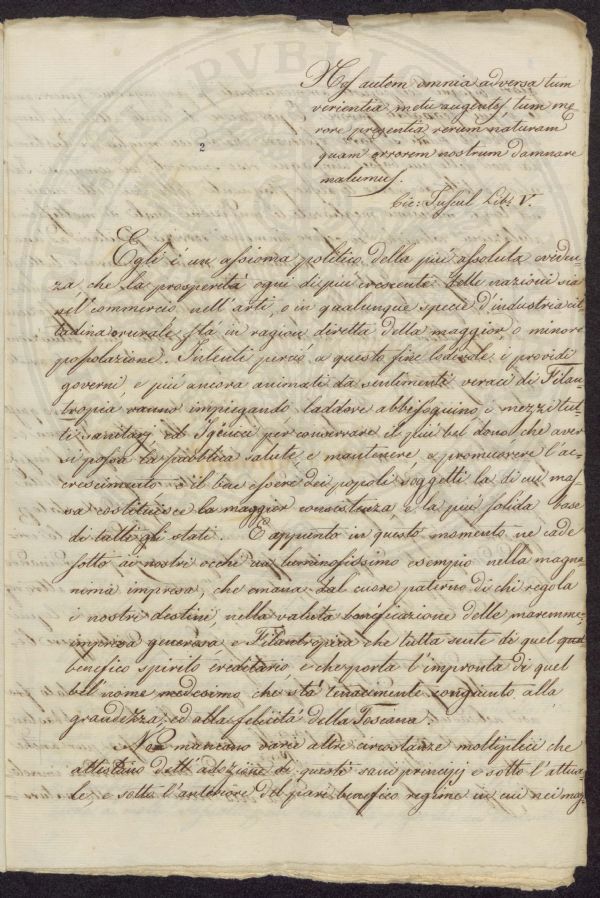 Nos autem omnia adversa tum
venientia metu augentes, tum me-
rore presentia rerum naturam
quam errorem nostrum damnare
malumus.
Cic: Tuscul Lib. V.
2
Egli è un assioma politico della più assoluta eviden-
za che la prosperità ogni di più crescente delle nazioni sia
nell' commercio, nell' arti, o in qualunque specie d'industria cit-
tadina o rurale, stà in ragion diretta della maggior, o minore
popolazione. Intenti perciò a questo fine lodevole, i providi
governi, e più ancora animati da sentimenti veraci di Filan-
tropia vanno impiegando laddove abbisognino i mezzi tut-
ti sanitarj, ed Igenici per conservare il più bel dono, che aver
si possa la pubblica salute, e mantenere, e promuovere l'ac-
crescimento e il ben essere dei popoli soggetti la di cui mas-
sa costituisce la maggior consistenza, e la più solida base
di tutti gli stati. E appunto in questo momento ne cade
sotto ai nostri occhi un luminosissimo esempio nella magna-
nima impresa, che emana dal cuore paterno di chi regola
i nostri destini, nella valuta bonificazione delle maremme,
impresa generosa e Filantropica che tutta sente di quel
benefico spirito ereditario, e che porta l'impronta di quel
bell' nome medesimo che stà tenacemente congiunto alla
grandezza, ed alla felicità della Toscana.
Non mancano varie altre circostanze moltiplici che
attestano dell' adozione di questi sani principj e sotto l'attua-
le, e sotto l'anteriore del pari benefico regime in cui nei mag-